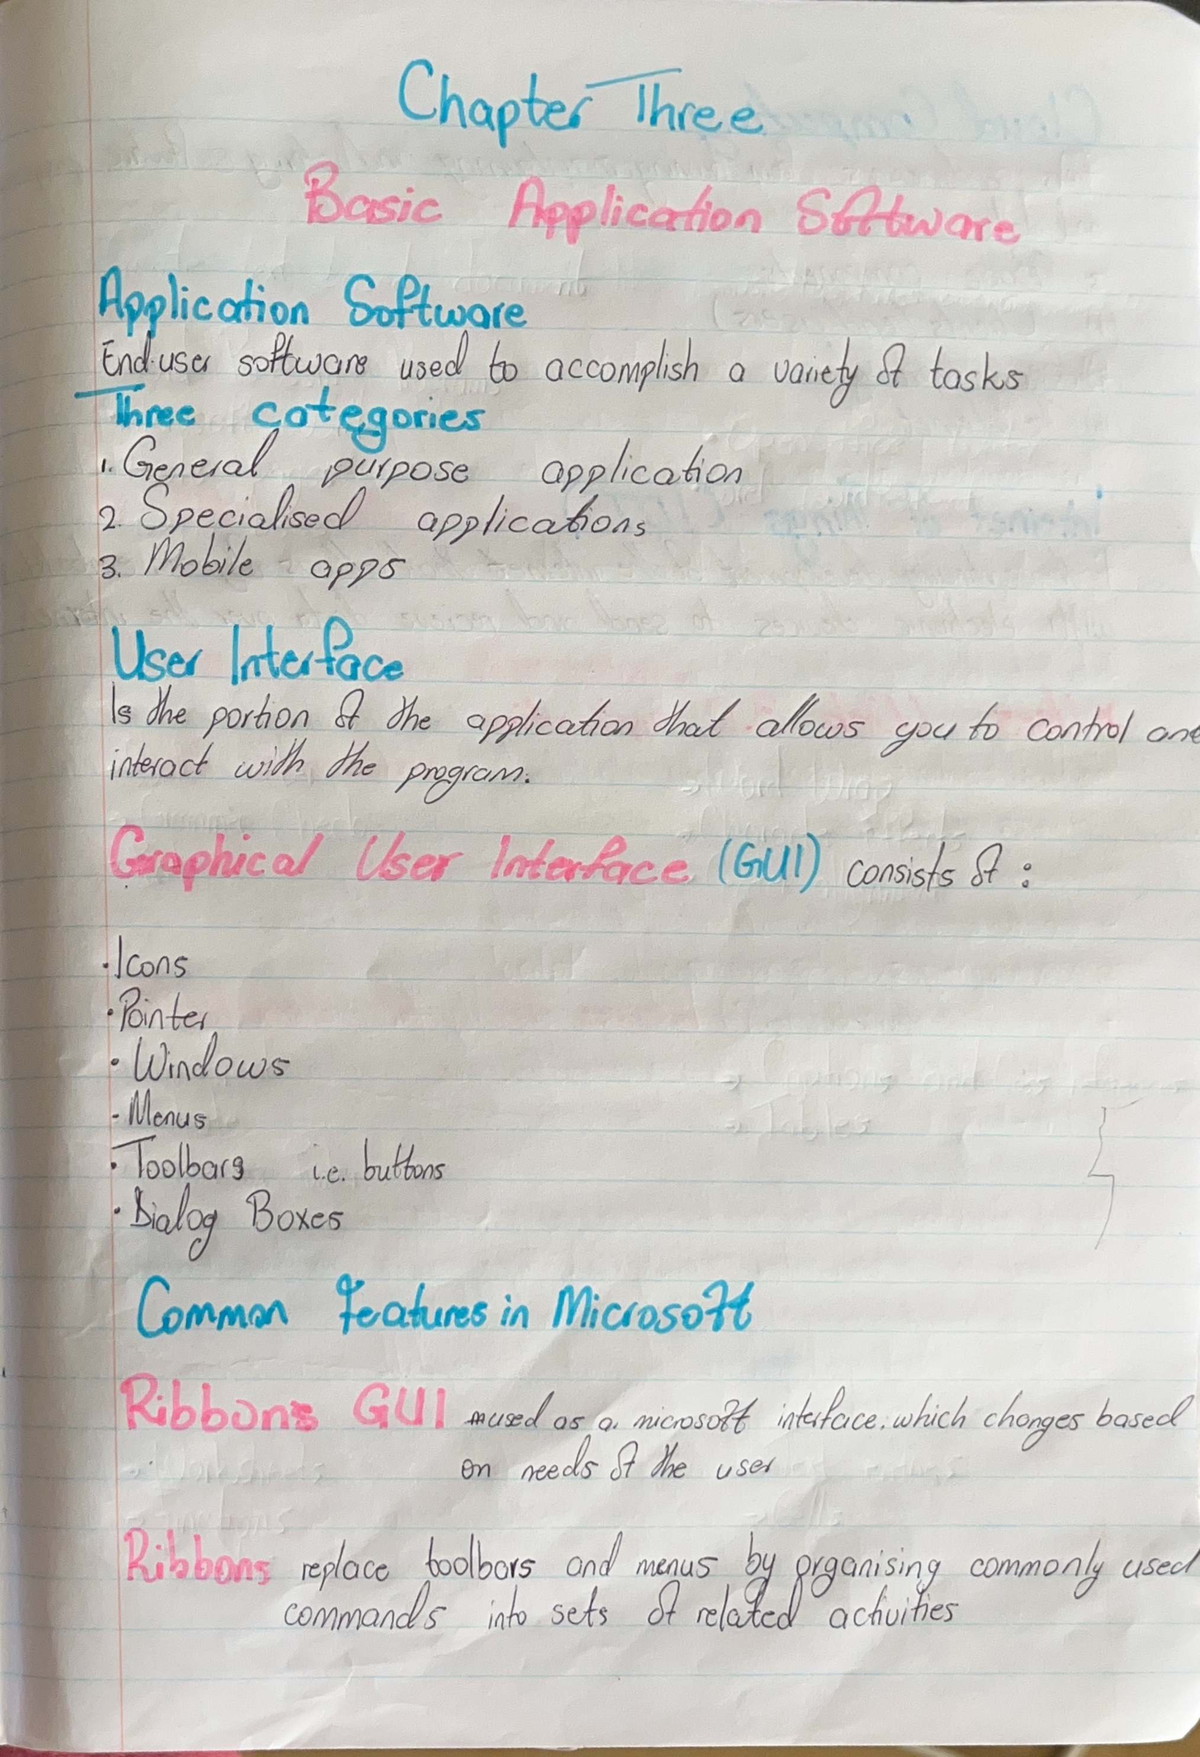 Chapter Three
Basic Application Software
Application Software
End-user software used to accomplish a variety of tasks
Three categories
1. General purpose application
2. Specialised applications
3. Mobile apps
User Interface
Is the portion of the application that allows you to control and
interact with the program.
Graphical User Interface (GUI) consists of :
· Icons
· Pointer
· Windows
- Menus
· Toolbars i.e. buttons
· Dialog Boxes
Common features in Microsoft
Ribbons GUI used as a microsoft interface. which changes based
on needs of the user
Ribbons replace toolbars and menus by organising commonly used
commands into sets of related activities